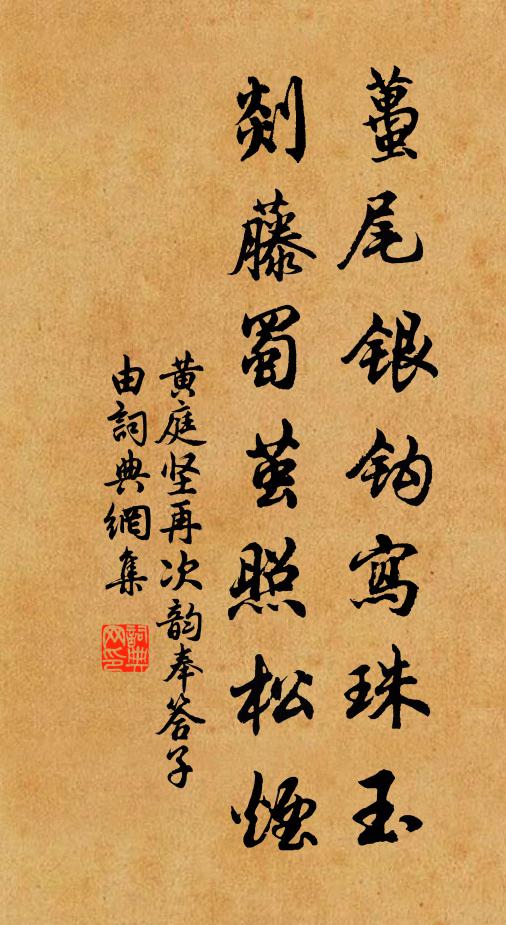 蠆尾銀钩寫珠玉
剡藤蜀茧照松煙
黄庭坚再次韵奉答子
由詞典網集
詞典
网印